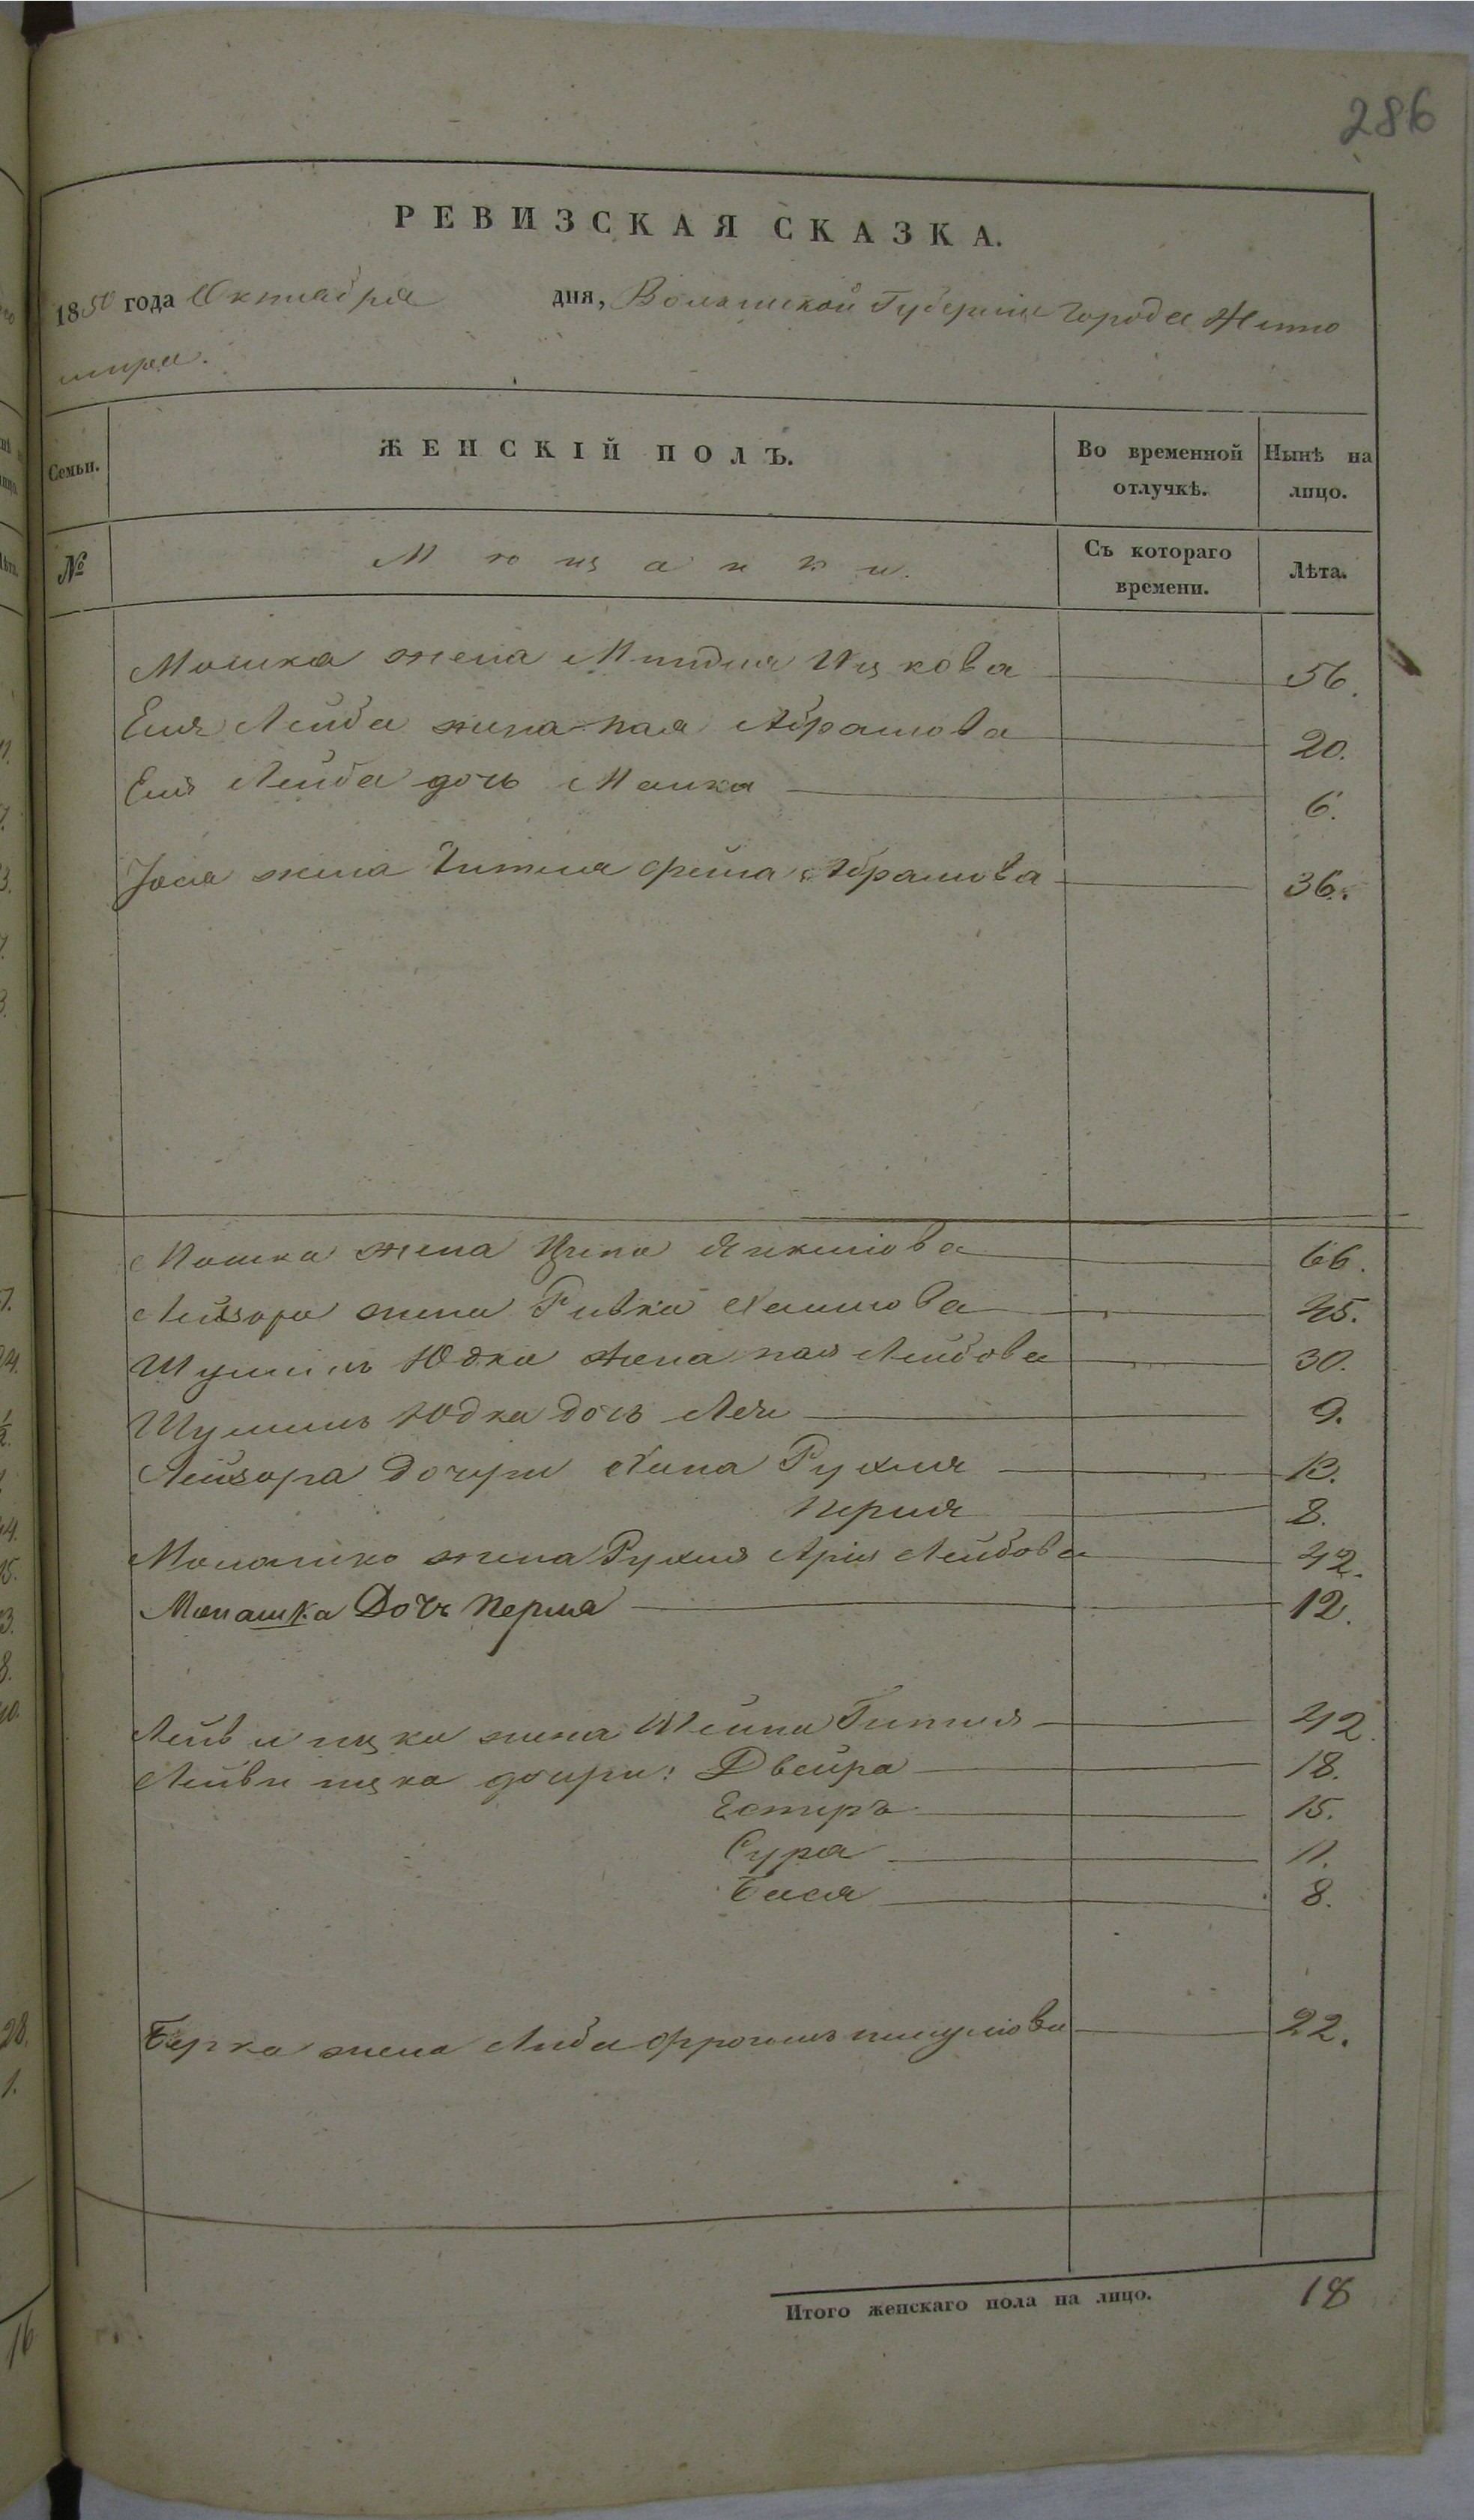 286
РЕВИЗСКАЯ СКАЗКА.
1850 года Октября дня, Волынской Губерніи города Жито
мира.
Семьи.
ЖЕНСКІЙ ПОЛЪ.
Во временной отлучкѣ.
Нынѣ на лицо.
№
Мещанки.
Съ котораго времени.
Лѣта.
Мошка жена Миндля Ицкова 56.
Еля Лейба жена Пая Абрамова 20.
Еля Лейба дочь Малка 6.
Іося жена Гитля Фейга Абрамова 36.
Мошка жена Ципа 66.
Лейзора жена Ривка Хаимова 45.
Шулимъ Юдка жена Пая Лейбова 30.
Шулимъ Юдка дочь Лея 9.
Лейзора дочери Хана Рухля 13.
Перля 8.
жена Рухля Арія Лейбова 42.
Монашка Дочъ Перля 12.
Лейви ицка жена Шейна Гитля 42.
Лейви ицка дочери: Двейра 18.
Естиръ 15.
Сура 11.
Бася 8.
Берка жена Либа 22.
Итого женскаго пола на лицо. 18